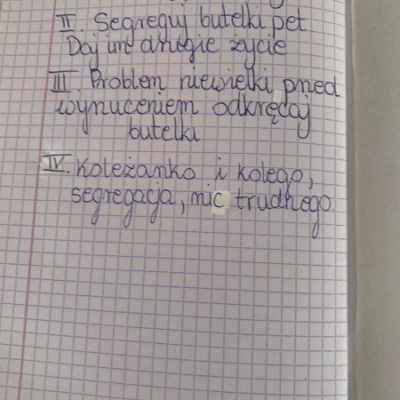 II Segreguj butelki pet
Daj im drugie życie
III. Problem niewielki przed
wyrzuceniem odkręcaj
butelki
IV. Koleżanko i kolego,
segregacja, nic trudnego